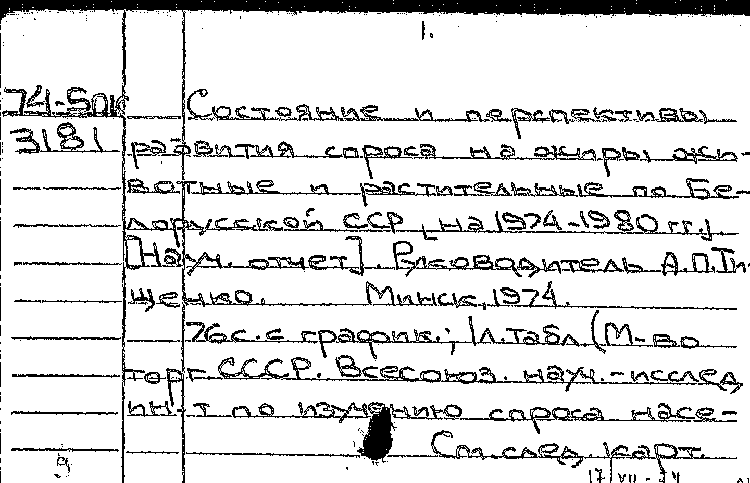 1.
74-5
3181
Состояние и перспективы
развития спроса на жиры жи-
вотные и растительные по Бе-
лорусской ССР [на 1974-1980 гг.].
[Науч. отчет]. Руководитель А.П.Ти-
щенко. Минск, 1974.
76с. с график.; 1л. табл. (М-во
торг. СССР. Всесоюз. науч.-исслед.
ин-т по изучению спроса насе-
См. след. карт.